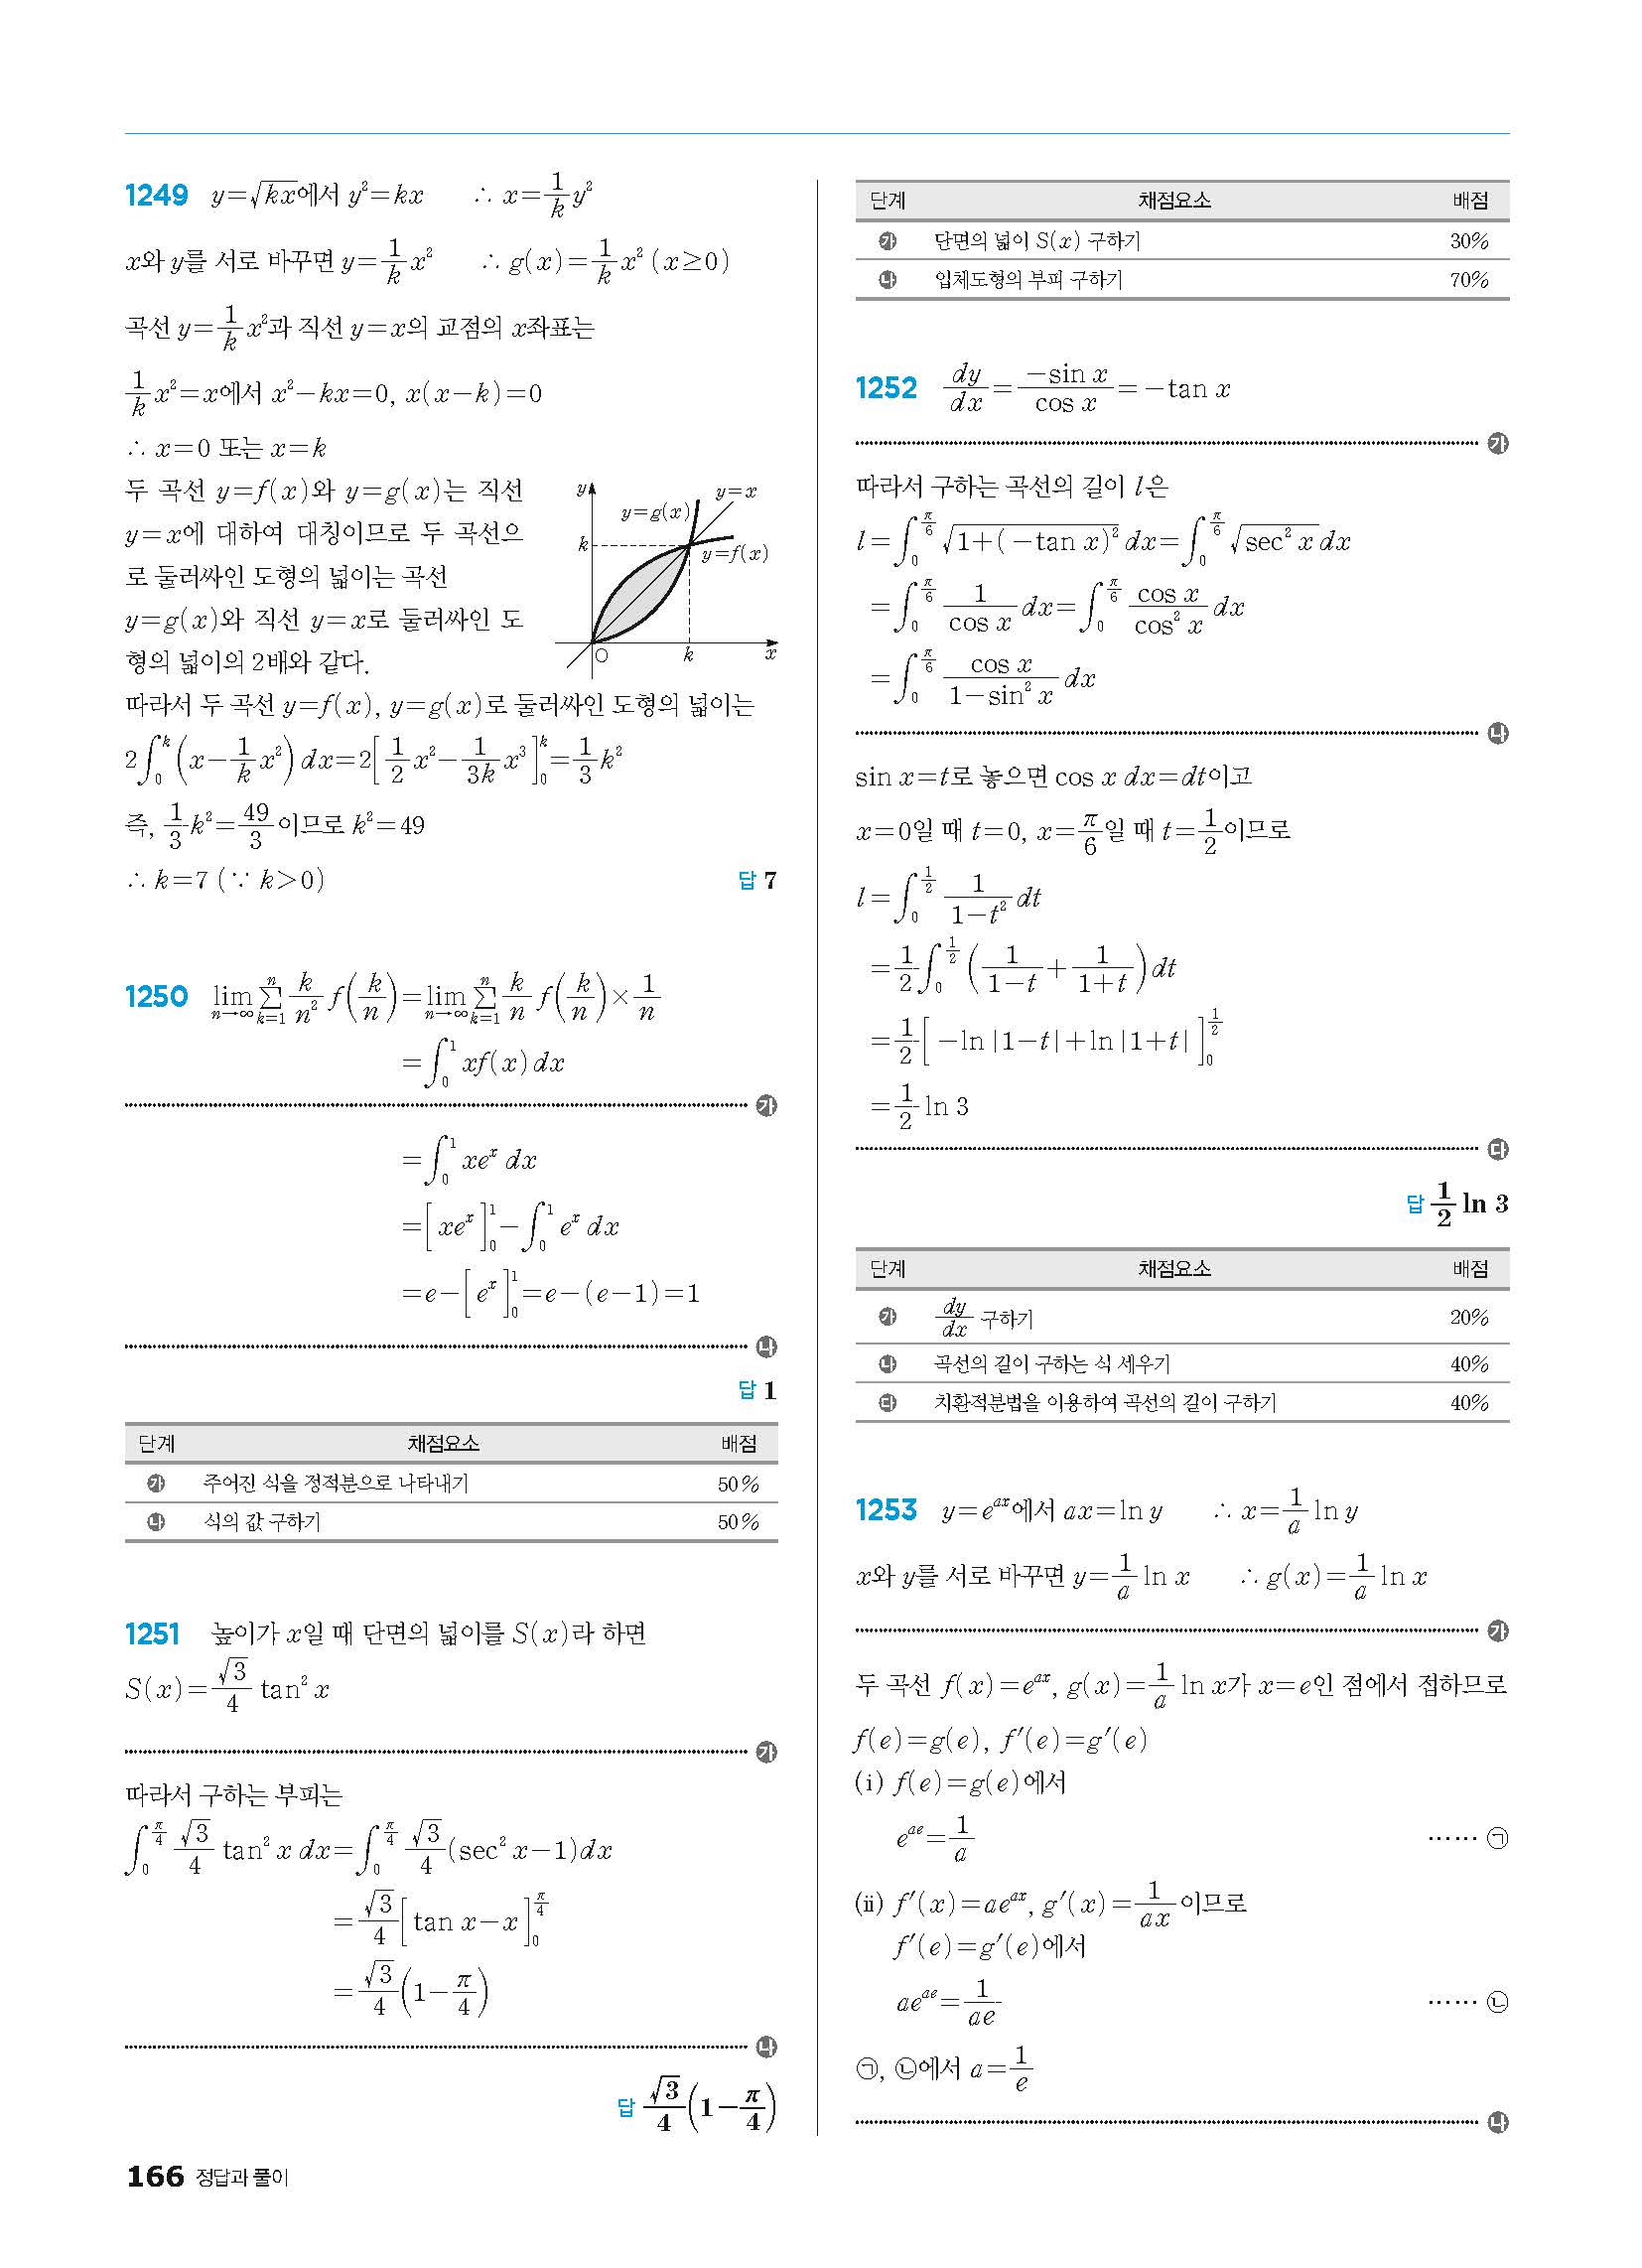 1249 y=√kx에서 y²=kx ∴ x=1/k y²
x와 y를 서로 바꾸면 y=1/k x² ∴ g(x)=1/k x² (x≥0)
곡선 y=1/k x²과 직선 y=x의 교점의 x좌표는
1/k x²=x에서 x²-kx=0, x(x-k)=0
∴ x=0 또는 x=k
두 곡선 y=f(x)와 y=g(x)는 직선
y=x에 대하여 대칭이므로 두 곡선으
로 둘러싸인 도형의 넓이는 곡선
y=g(x)와 직선 y=x로 둘러싸인 도
형의 넓이의 2배와 같다.
y
y=x
y=g(x)
k
y=f(x)
O
k
x
따라서 두 곡선 y=f(x), y=g(x)로 둘러싸인 도형의 넓이는
2∫₀ᵏ(x-1/k x²)dx=2[1/2 x²-1/3k x³]₀ᵏ=1/3 k²
즉, 1/3 k²=49/3이므로 k²=49
∴ k=7 (∵ k>0)
답 7
1250 lim n→∞ Σ k=1 n k/n² f(k/n)=lim n→∞ Σ k=1 n k/n f(k/n)×1/n
=∫₀¹ xf(x)dx
㉮
=∫₀¹ xeˣ dx
=[xeˣ]₀¹-∫₀¹ eˣ dx
=e-[eˣ]₀¹=e-(e-1)=1
㉯
답 1
단계 채점요소 배점
㉮ 주어진 식을 정적분으로 나타내기 50%
㉯ 식의 값 구하기 50%
1251 높이가 x일 때 단면의 넓이를 S(x)라 하면
S(x)=√3/4 tan² x
㉮
따라서 구하는 부피는
∫₀^(π/4) √3/4 tan² x dx=∫₀^(π/4) √3/4(sec² x-1)dx
=√3/4[tan x-x]₀^(π/4)
=√3/4(1-π/4)
㉯
답 √3/4(1-π/4)
166 정답과 풀이
단계 채점요소 배점
㉮ 단면의 넓이 S(x) 구하기 30%
㉯ 입체도형의 부피 구하기 70%
1252 dy/dx=-sin x/cos x=-tan x
㉮
따라서 구하는 곡선의 길이 l은
l=∫₀^(π/6) √1+(-tan x)² dx=∫₀^(π/6) √sec² x dx
=∫₀^(π/6) 1/cos x dx=∫₀^(π/6) cos x/cos² x dx
=∫₀^(π/6) cos x/1-sin² x dx
㉯
sin x=t로 놓으면 cos x dx=dt이고
x=0일 때 t=0, x=π/6일 때 t=1/2이므로
l=∫₀^(1/2) 1/1-t² dt
=1/2∫₀^(1/2)(1/1-t+1/1+t)dt
=1/2[-ln|1-t|+ln|1+t|]₀^(1/2)
=1/2 ln 3
㉰
답 1/2 ln 3
단계 채점요소 배점
㉮ dy/dx 구하기 20%
㉯ 곡선의 길이 구하는 식 세우기 40%
㉰ 치환적분법을 이용하여 곡선의 길이 구하기 40%
1253 y=e^(ax)에서 ax=ln y ∴ x=1/a ln y
x와 y를 서로 바꾸면 y=1/a ln x ∴ g(x)=1/a ln x
㉮
두 곡선 f(x)=e^(ax), g(x)=1/a ln x가 x=e인 점에서 접하므로
f(e)=g(e), f′(e)=g′(e)
(ⅰ) f(e)=g(e)에서
e^(ae)=1/a …… ㉠
(ⅱ) f′(x)=ae^(ax), g′(x)=1/ax이므로
f′(e)=g′(e)에서
ae^(ae)=1/ae …… ㉡
㉠, ㉡에서 a=1/e
㉯